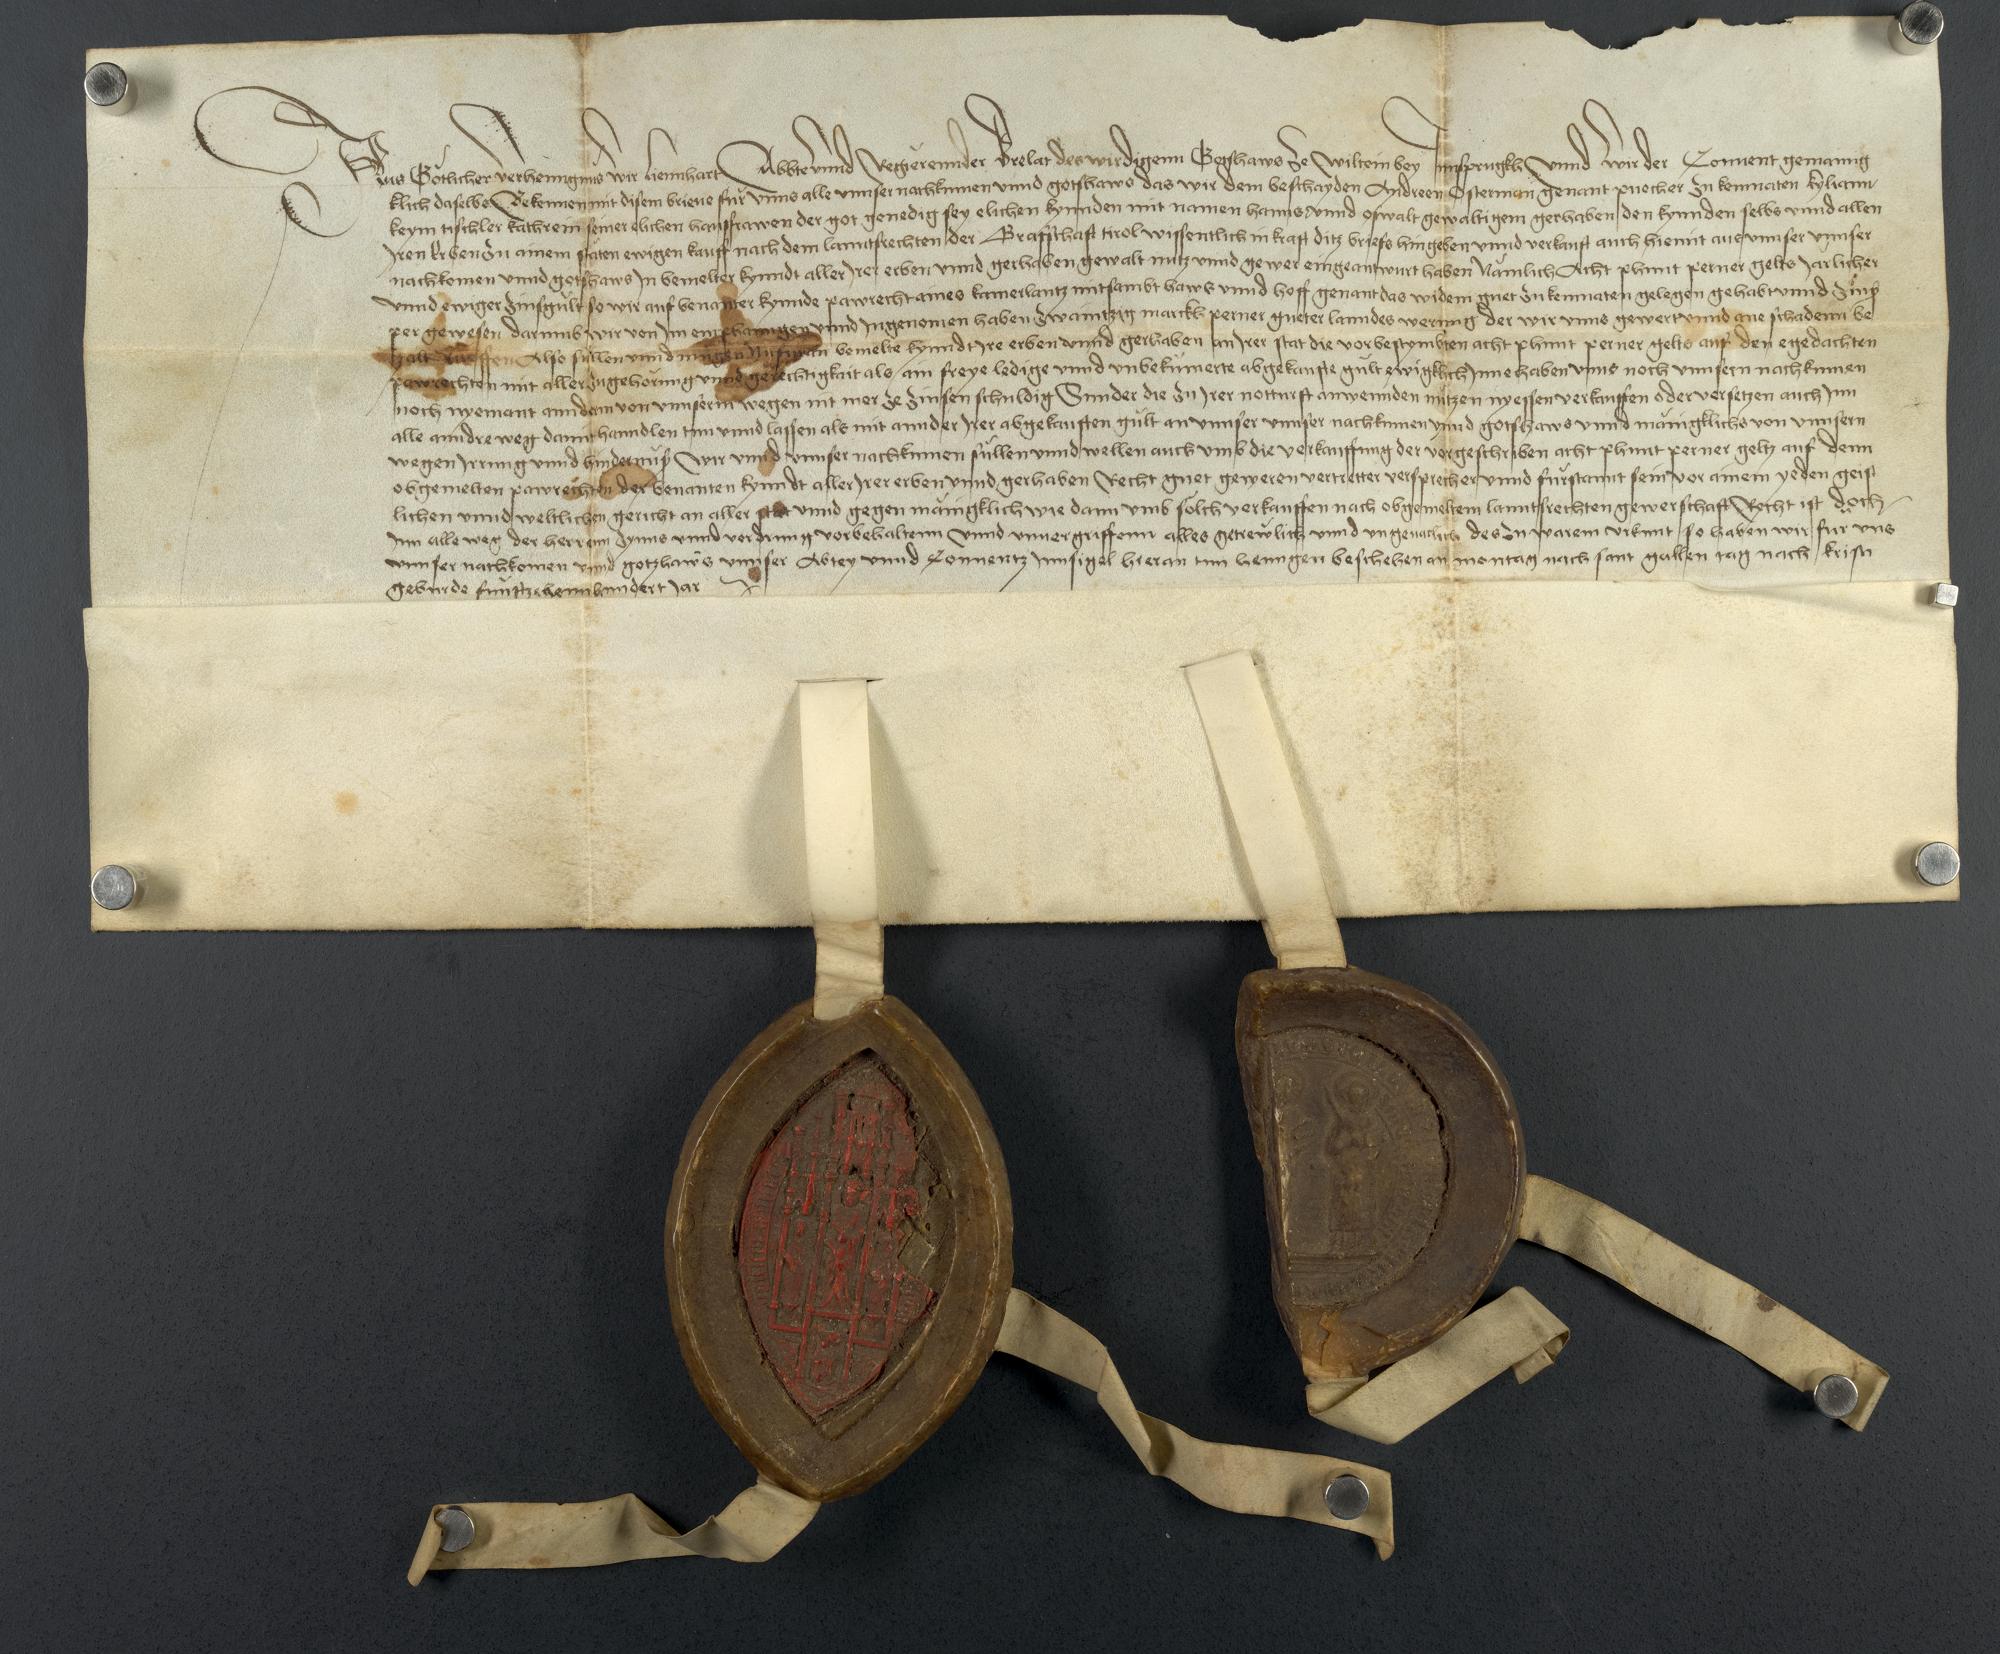 Aus Götlicher verhenngnus wir Lienhart Abbte unnd Regierennder Prelat des wirdigenn Gotzhaws Ze Wiltein bey Innsprugkh Unnd wir der Convent gemainig
klich daselbs Bekennen mit disem brieve für unns alle unnser nachkumen unnd gotshaws das wir dem beschayden Andreen Osterman genant puecher zu kemnaten kyliann
keym tischler kathrein seiner elichen hausfrawen der got genedig sey elichen kynnden mit namen hanns unnd oswalt gewaltigem gerhaben den kynnden selbs unnd allen
Iren Erben Zu ainem stäten ewigen kauff nach dem lanntsrechten der Grafschaft tirol wissentlich in kraft ditz briefs hingeben unnd verkauft auch hiemit aus unnser unnser
nachkomen unnd gotshaws In bemelter kynndt aller Irer erben unnd gerhaben gewalt nutz unnd gewer eingeantwurt haben Nämlich Acht phunt perner gelts Jarlicher
unnd ewiger Zinsgült so wir auf benanter kynnde pawrecht aines kamerlantz mitsambt haws unnd hoff genant das widem guet zu kemnaten gelegen gehabt unnd
per gewesen darumb wir von In emphanngen unnd Ingenomen haben Zwaintzig marckh perner gueter lanndes werung der wir unns gewert unnd ane schadenn be
zalt Also süllen unnd mügen bemelte kynndt Ire erben unnd gerhaben an Irer stat die vorbestymbten acht phunt perner gelts auf den egedachten
pawrechten mit aller Zugehörung unnd gerechtigkait als ain freye ledige unnd unbekümerte abgekaufte gült ewigklich Innehaben unns noch unnsern nachkumen
noch nyemant anndern von unnserm wegen nit mer Ze Zinsen schuldig Sunder die Zu Irer notturft anwennden nützen nyessen verkauffen oder versetzen auch Inn
alle anndre weg damit hanndlen tun unnd lassen als mit annder Irer abgekauften gült an unnser unnser nachkumen unnd gotshaws unnd mäingklichs von unnsern
wegen Irrung unnd hindernuß Wir unnd unnser nachkumen süllen unnd wellen auch umb die verkauffung der vorgeschriben acht phunt perner geltz auf denn
obgemelten pawrechten der benanten kynndt aller Irer erben unnd gerhaben Recht guet geweren vertretter versprecher unnd fürstannt sein vor ainem yeden geist
lichen unnd weltlichen gericht an aller stat unnd gegen mäingklich wie dann umb sölch verkauffen nach obgemeltem lanntsrechten gewerschaft Recht ist doch
Inn alle weg der herren Zynns unnd vordrung vorbehaltenn Unnd unnvergriffenn alles getrewlich unnd ungevärlich des Zu warem urkunt so haben wir für uns
unnser nachkomen unnd gotzhaws unnser Abtey unnd Conventz Innsigel hieran tun henngen beschehen an montag nach sant gallen tag nach kristi
geburde fünftzehennhundert Jar